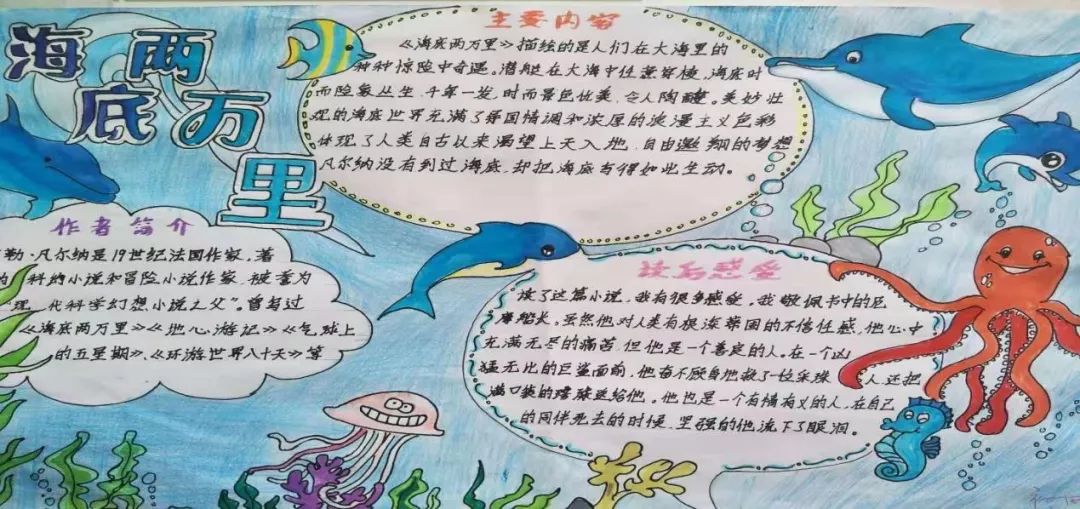 海底两万里
主要内容
《海底两万里》描绘的是人们在大海里的
种种惊险中奇遇。潜艇在大海中任意穿梭,海底时
而险象丛生、千年一发,时而景色优美、令人陶醉。美妙壮
观的海底世界充满了异国情调和浓厚的浪漫主义色彩
体现了人类自古以来渴望上天入地、自由遨翔的梦想
凡尔纳没有到过海底,却把海底写得如此生动。
作者简介
勒·凡尔纳是19世纪法国作家,著
科幻小说和冒险小说作家,被誉为
现代科学幻想小说之父”。曾写过
《海底两万里》《地心游记》《气球上
的五星期》、《环游世界八十天》等
读后感受
读了这篇小说,我有很多感受。我敬佩书中的尼
摩船长。虽然他对人类有根深蒂固的不信任感,他心中
充满无尽的痛苦,但他是一个善良的人。在一个凶
猛无比的巨鲨面前,他奋不顾身地救了一位采珠人,还把
满口袋的珍珠送给他。他也是一个有情有义的人,在自己
的同伴死去的时候,坚强的他流下了眼泪。